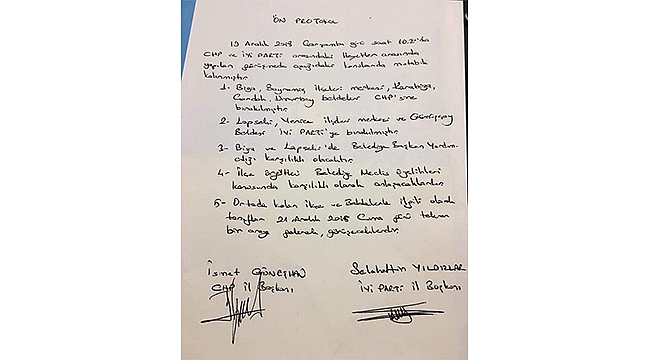 ÖN PROTOKOL
19 Aralık 2018 Çarşamba günü saat 10.20'da
CHP ve İYİ PARTİ arasındaki Heyetler arasında
yapılan görüşmede aşağıdaki konularda mutabık
kalınmıştır.
1- Biga, Bayramiç ilçeleri merkezi, Karabiga,
Çardak, Umurbey beldeleri CHP'sine
bırakılmıştır.
2- Lapseki, Yenice ilçeleri merkezi ve Gümüşçay
Beldesi İYİ PARTİ'ye bırakılmıştır.
3- Biga ve Lapseki'de Belediye Başkan Yardım-
cılığı karşılıklı olacaktır.
4- İlçe Belediye Meclis üyelikleri
konusunda karşılıklı olarak anlaşacaklardır.
5- Ortada kalan ilçe ve Beldelerle ilgili olarak
taraflar 21 Aralık 2018 Cuma günü tekrar
bir araya gelerek, görüşeceklerdir.
İsmet GÜNEŞHAN
CHP il Başkanı
Selahattin YILDIZLAR
İYİ PARTİ il Başkanı